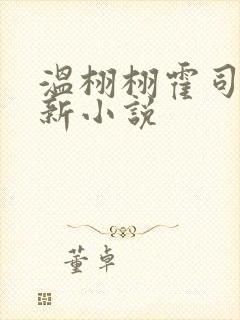 温栩栩霍司
新小说
董卓